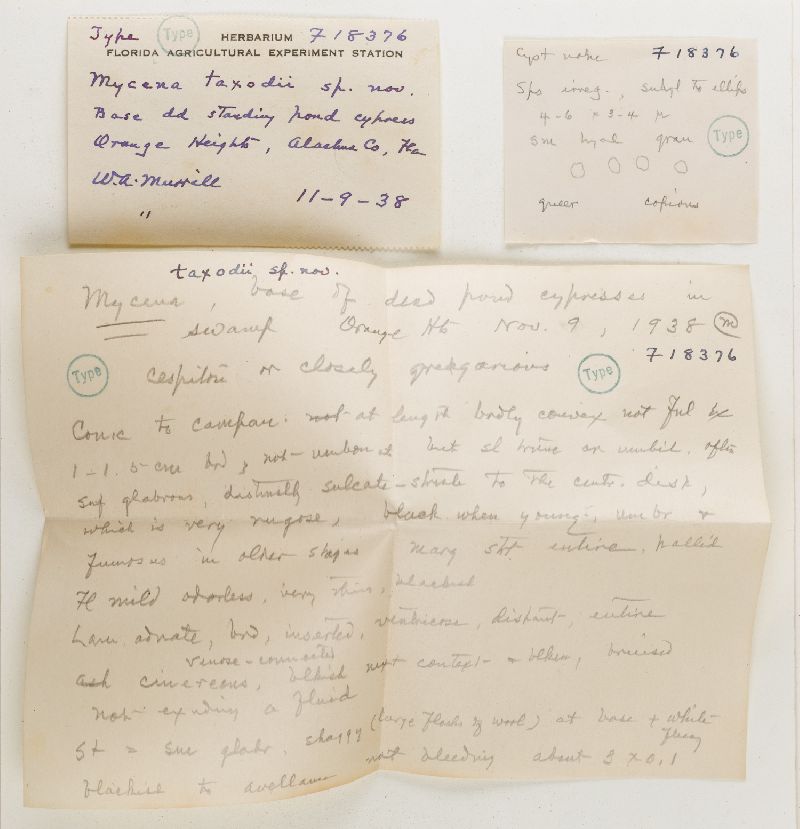 Type Type HERBARIUM F18376
FLORIDA AGRICULTURAL EXPERIMENT STATION
Mycena taxodii sp. nov.
Base dd standing pond cypress
Orange Heights, Alachua Co, Fla
W.A. Murrill
" 11-9-38
Cyst none F18376
Sps irreg., subgl to ellips
4-6 x 3-4 µ
sm hyal gran Type
queer copious
taxodii sp. nov.
Mycena, base of dead pond cypresses in
swamp Orange Ht Nov. 9, 1938 M
F18376
Type cespitose or closely gregarious Type
Conic to campan. not at length brdly convex not ful ex
1-1.5 cm brd, not umbonat but sl trunc or umbil. often
surf glabrous, distinctly sulcate-striate to the centr. disk,
which is very rugose, black when young, umbr &
fumosus in older stages marg str entire, pallid
Fl mild odorless, very thin, blackish
Lam adnate, brd, inserted, ventricose, distant, entire
venose-connected
ash cinereous, blkish next context & when bruised
not exuding a fluid
St = sm glabr. shaggy (large flocks of wool) at base + white fuzzy
blackish to avellaneous not bleeding about 3 x 0.1